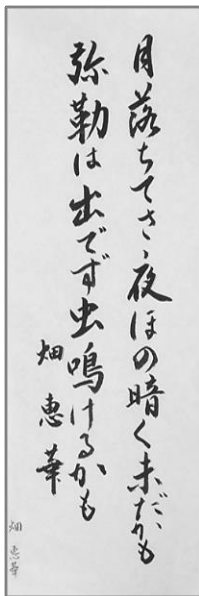 月落ちてさ夜ほの暗く未だかも
弥勒は出でず虫鳴けるかも
畑 恵華
畑 恵華